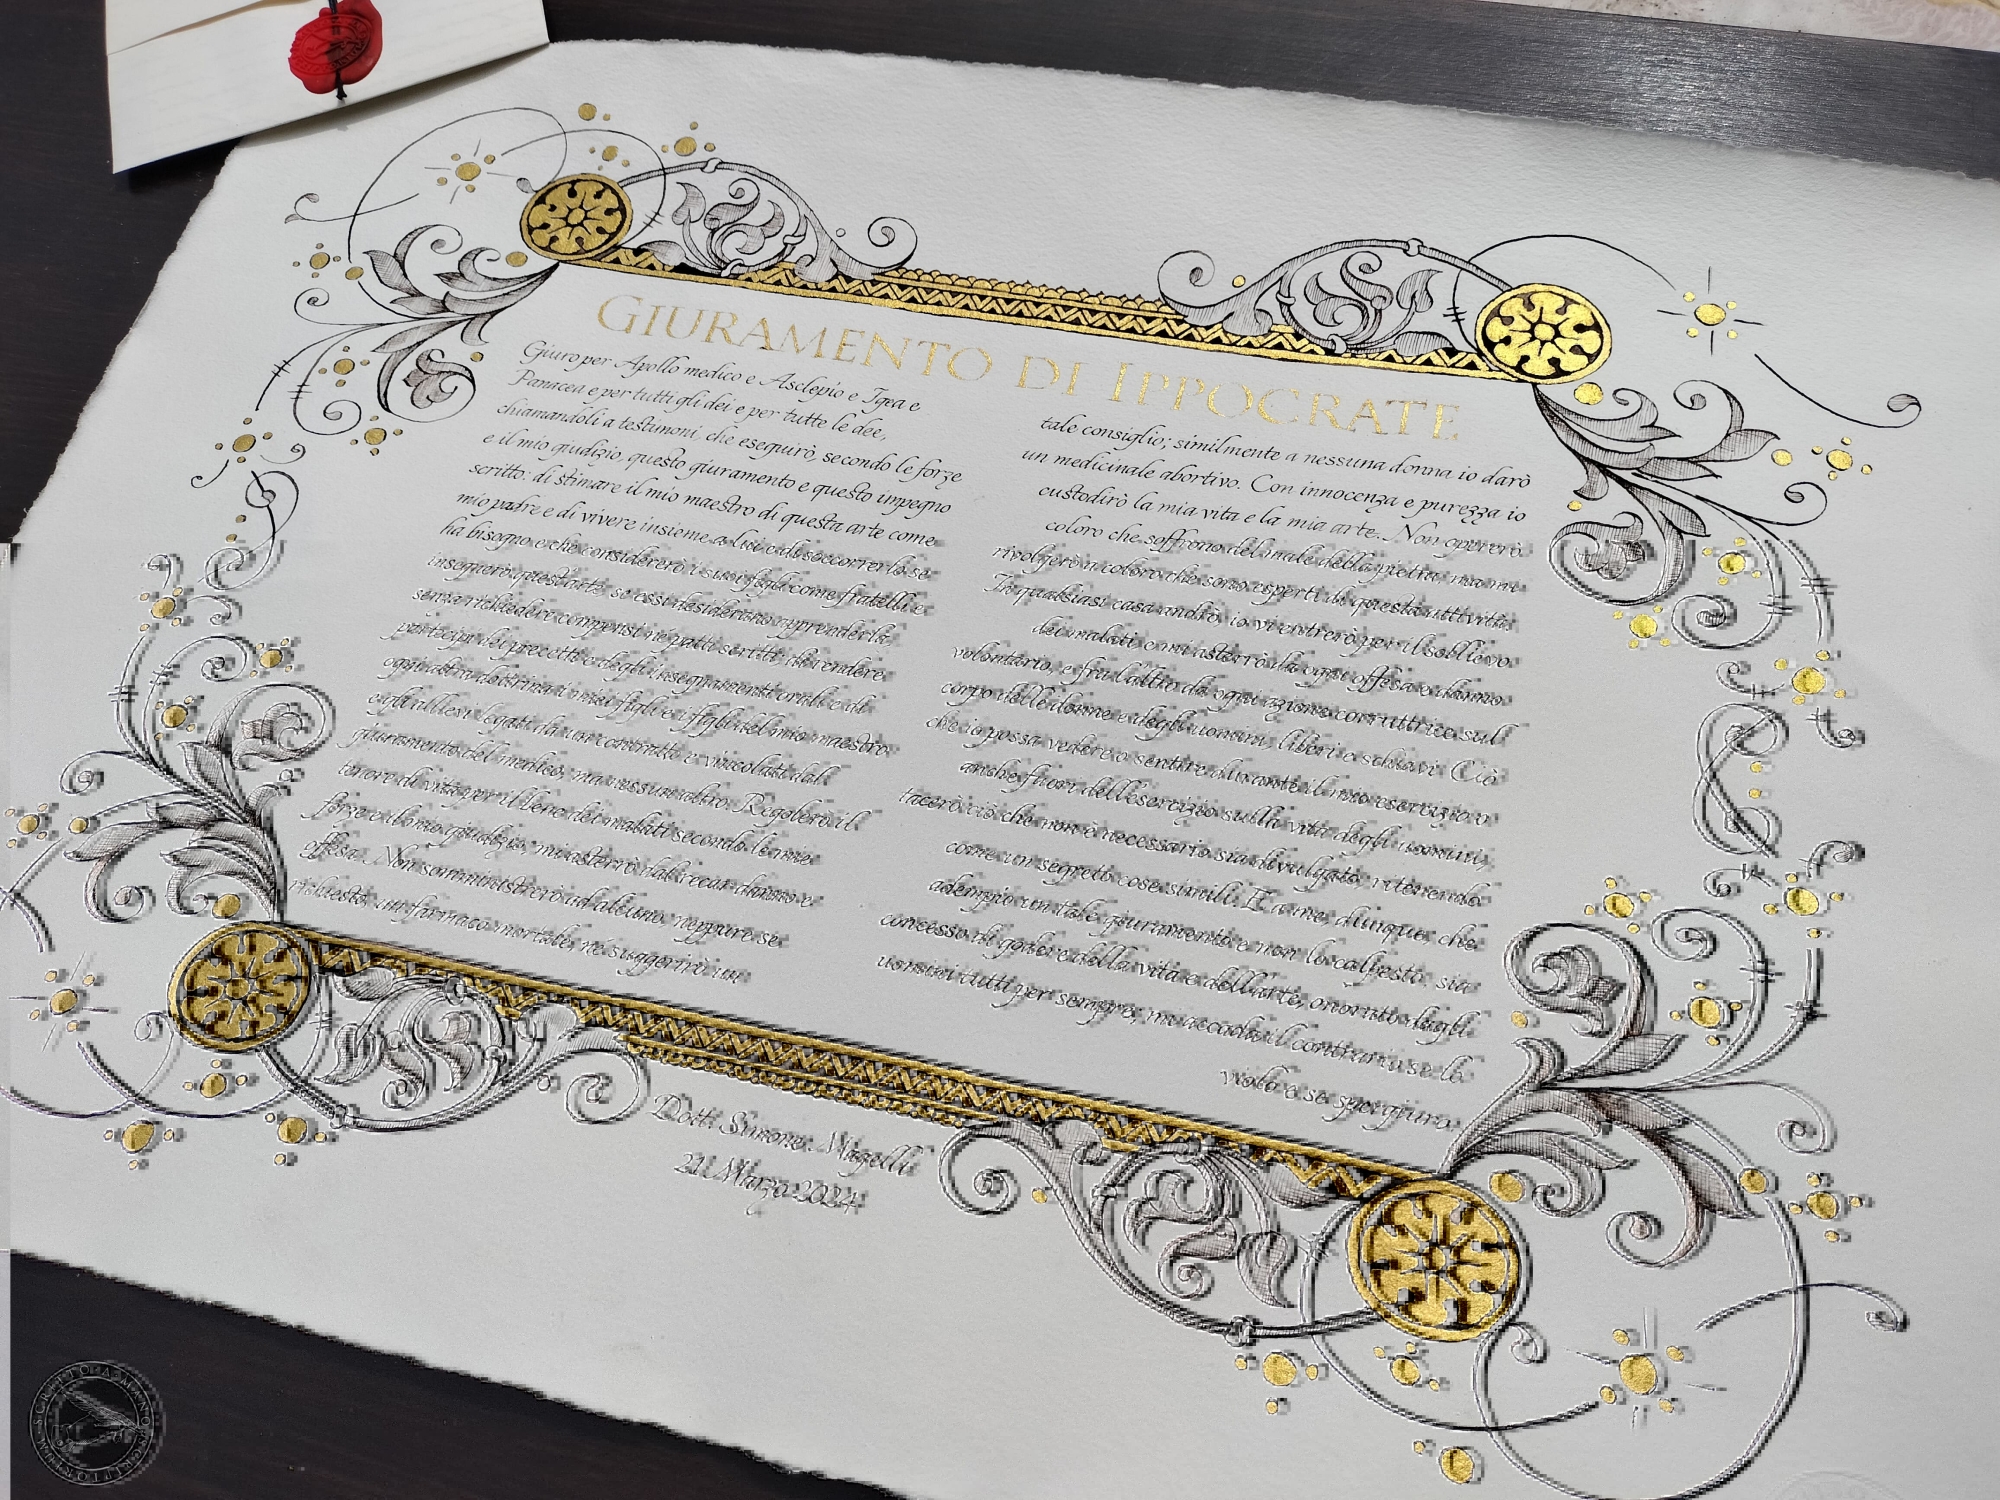 GIURAMENTO DI IPPOCRATE
Giuro per Apollo medico e Asclepio e Igea e
Panacea e per tutti gli dei e per tutte le dee,
chiamandoli a testimoni, che eseguirò, secondo le forze
e il mio giudizio, questo giuramento e questo impegno
scritto: di stimare il mio maestro di questa arte come
mio padre e di vivere insieme a lui e di soccorrerlo se
ha bisogno e che considererò i suoi figli come fratelli e
insegnerò quest'arte, se essi desiderano apprenderla,
senza richiedere compensi né patti scritti; di rendere
partecipi dei precetti e degli insegnamenti orali e di
ogni altra dottrina i miei figli e i figli del mio maestro
e gli allievi legati da un contratto e vincolati dal
giuramento del medico, ma nessun altro. Regolerò il
tenore di vita per il bene dei malati secondo le mie
forze e il mio giudizio, mi asterrò dal recar danno e
offesa. Non somministrerò ad alcuno, neppure se
richiesto, un farmaco mortale, né suggerirò un
tale consiglio; similmente a nessuna donna io darò
un medicinale abortivo. Con innocenza e purezza io
custodirò la mia vita e la mia arte. Non opererò
coloro che soffrono del male della pietra, ma mi
rivolgerò a coloro che sono esperti di questa attività.
In qualsiasi casa andrò, io vi entrerò per il sollievo
dei malati, e mi asterrò da ogni offesa e danno
volontario, e fra l'altro da ogni azione corruttrice sul
corpo delle donne e degli uomini, liberi e schiavi. Ciò
che io possa vedere o sentire durante il mio esercizio o
anche fuori dell'esercizio sulla vita degli uomini,
tacerò ciò che non è necessario sia divulgato, ritenendo
come un segreto cose simili. E a me, dunque, che
adempio un tale giuramento e non lo calpesto, sia
concesso di godere della vita e dell'arte, onorato dagli
uomini tutti per sempre; mi accada il contrario se lo
violo e se spergiuro.
Dott. Simone Magelli
21 Marzo 2024